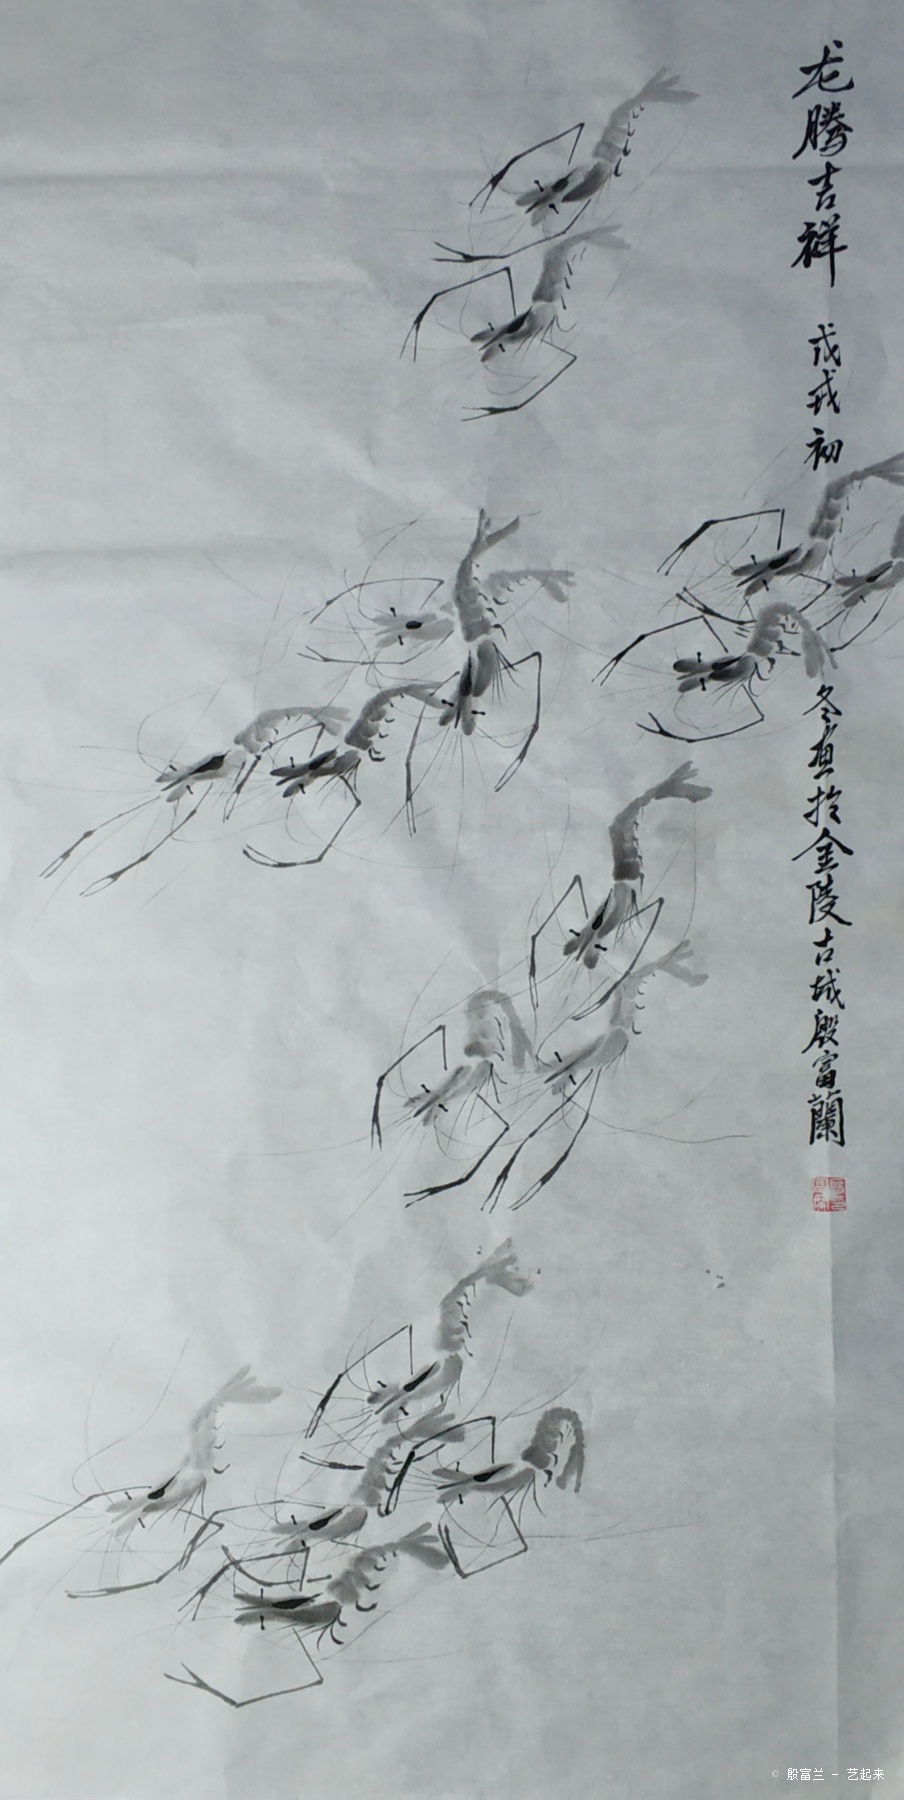 龙腾吉祥 戊戌初冬画於金陵古城殷富蘭
© 殷富兰 - 艺起来